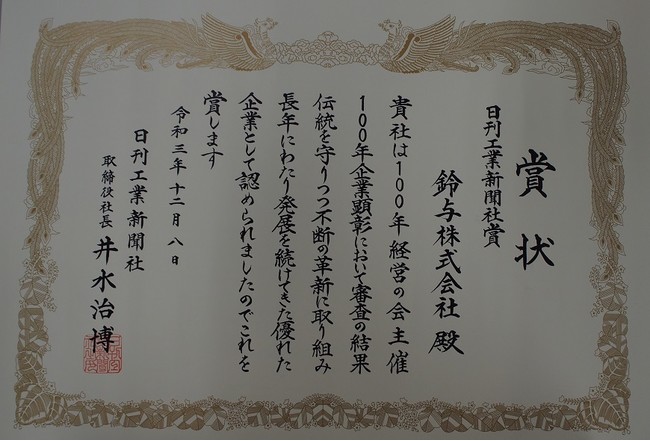 賞状
日刊工業新聞社賞
鈴与株式会社 殿
貴社は100年経営の会主催
100年企業顕彰において審査の結果
伝統を守りつつ不断の革新に取り組み
長年にわたり発展を続けてきた優れた
企業として認められましたのでこれを
賞します
令和三年十二月八日
日刊工業新聞社
取締役社長 井水治博